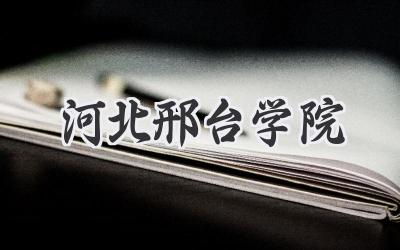 河北邢台学院